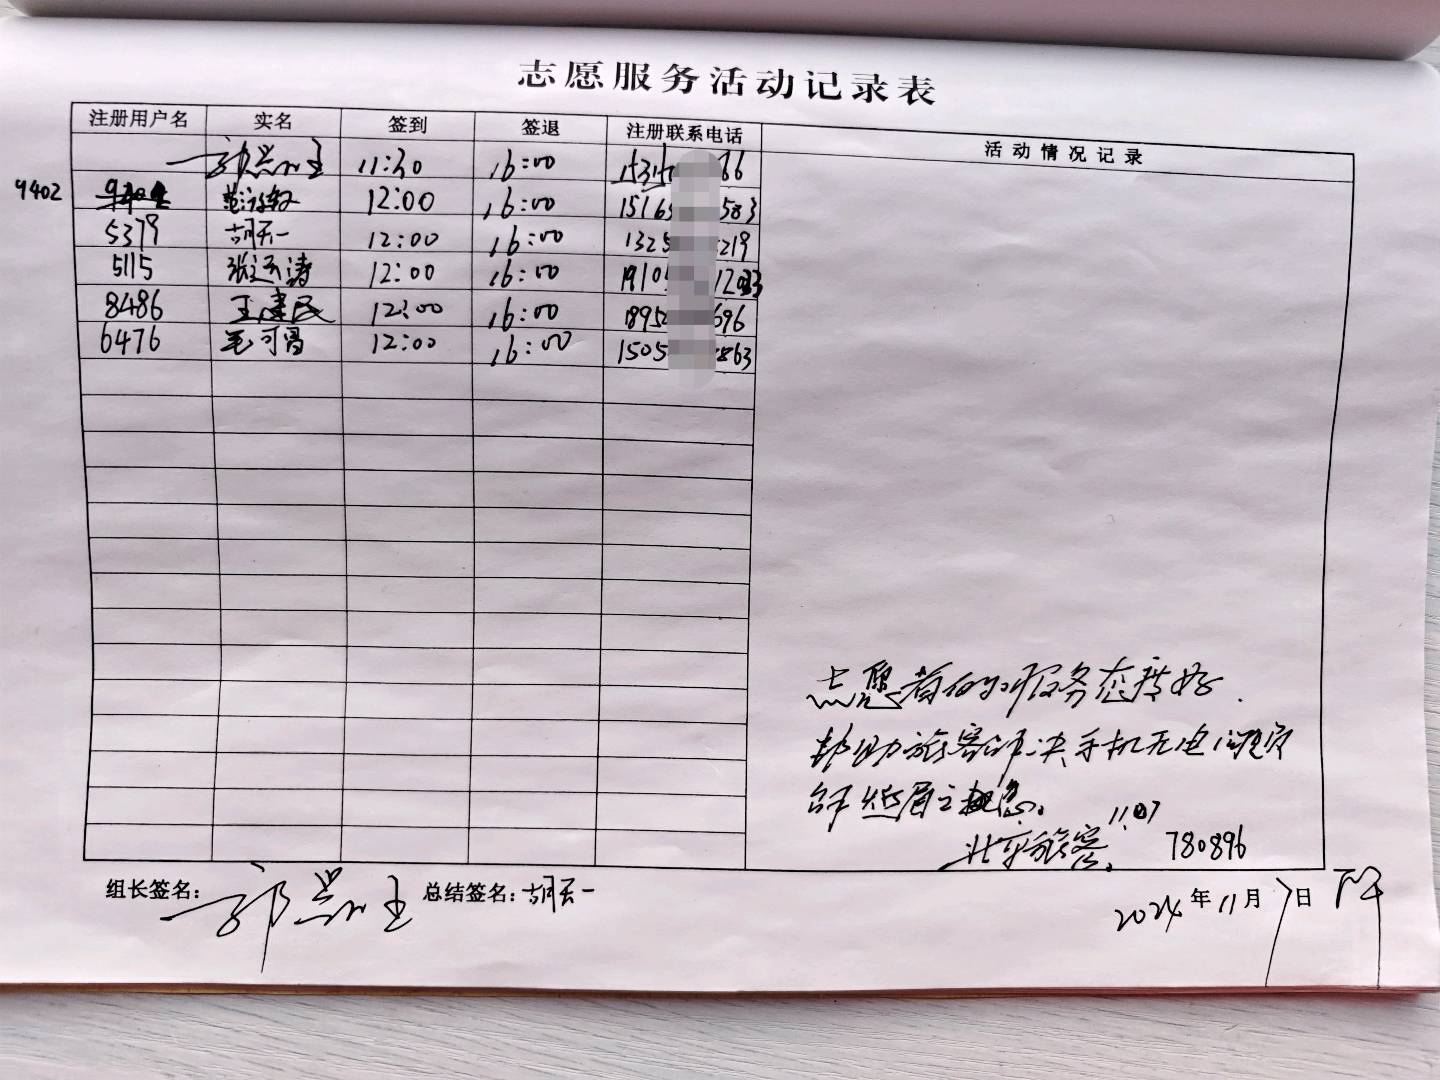 志愿服务活动记录表
注册用户名 实名 签到 签退 注册联系电话 活动情况记录
11:30 16:00 66
9402 12:00 16:00 1516 583
5379 胡天一 12:00 16:00 1325 219
5115 张运涛 12:00 16:00 1910
8486 王建民 12:00 16:00 895 696
6476 毛可富 12:00 16:00 1505 863
志愿者们的服务态度好.
帮助旅客解决手机无电
解燃眉之急。
北京旅客. 11.07 780896
组长签名: 总结签名:胡天一
2024年11月7日 下午